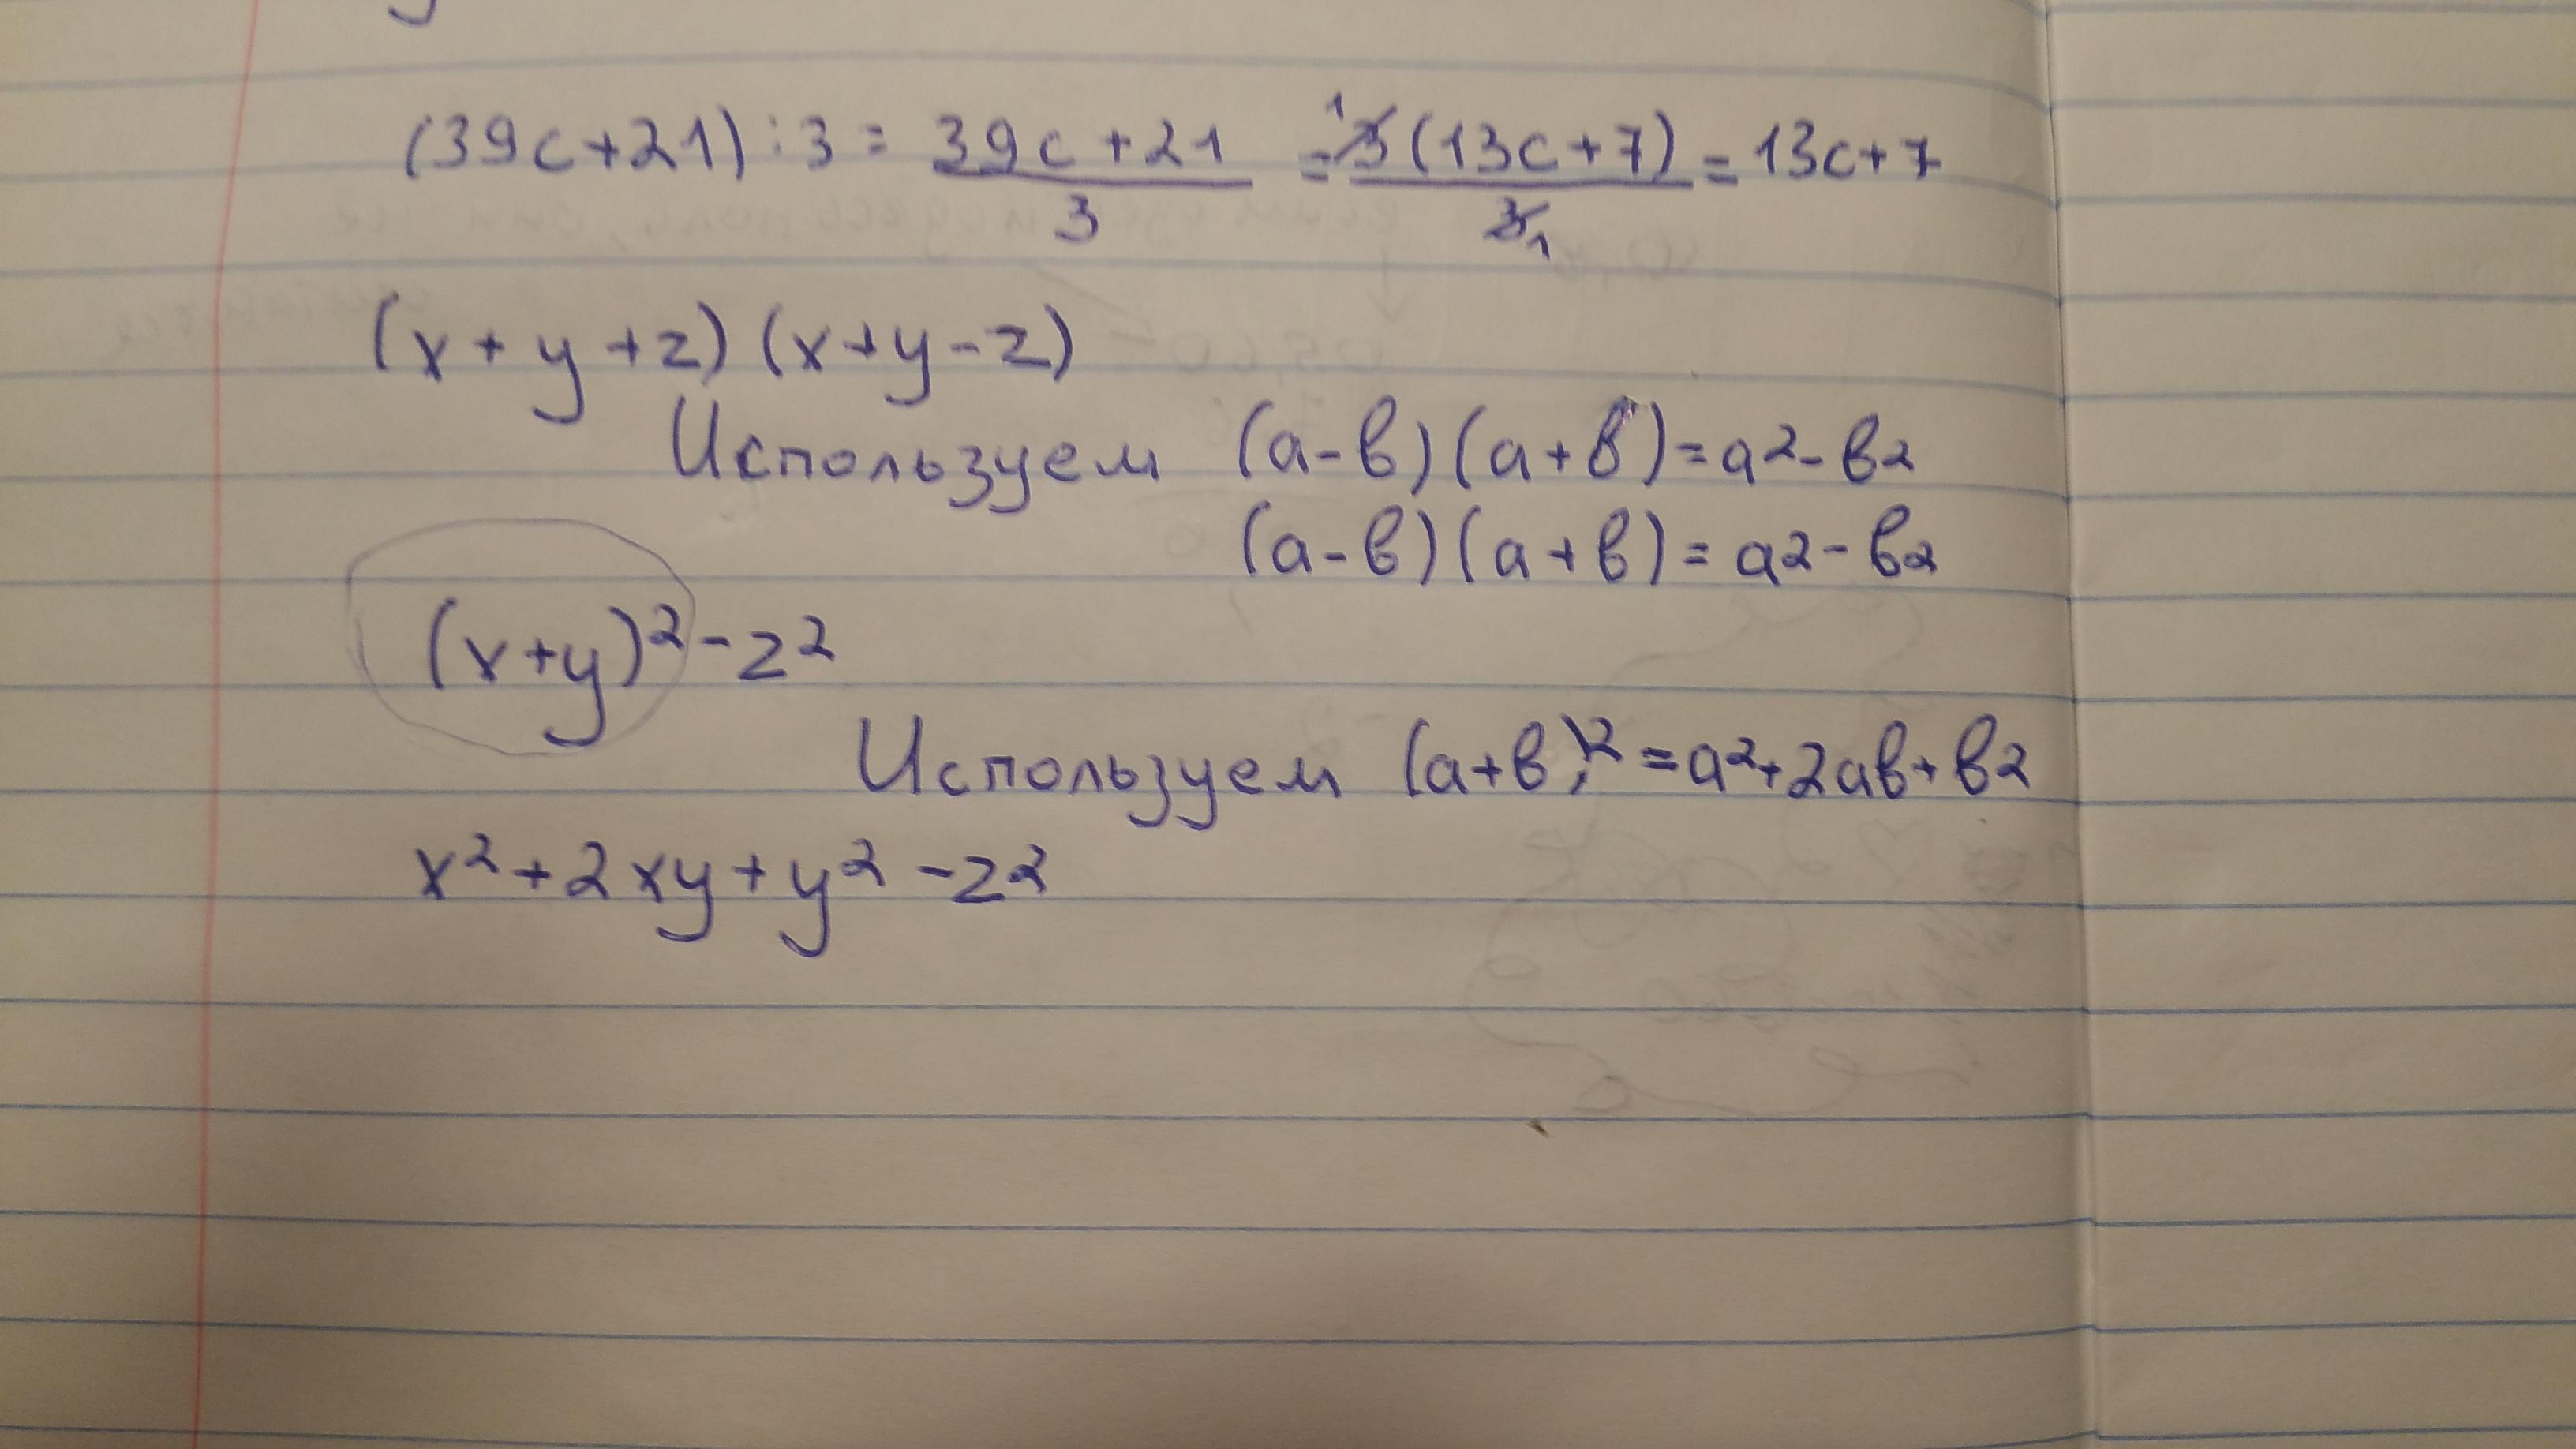 (39c+21):3= 39c+21/3 = 3(13c+7)/3 = 13c+7
(x+y+z)(x+y-z)
Используем (a-в)(a+в)=a2-в2
(a-в)(a+в)=a2-в2
(x+y)²-z²
Используем (a+в)²=a²+2aв+в2
x²+2xy+y²-z²